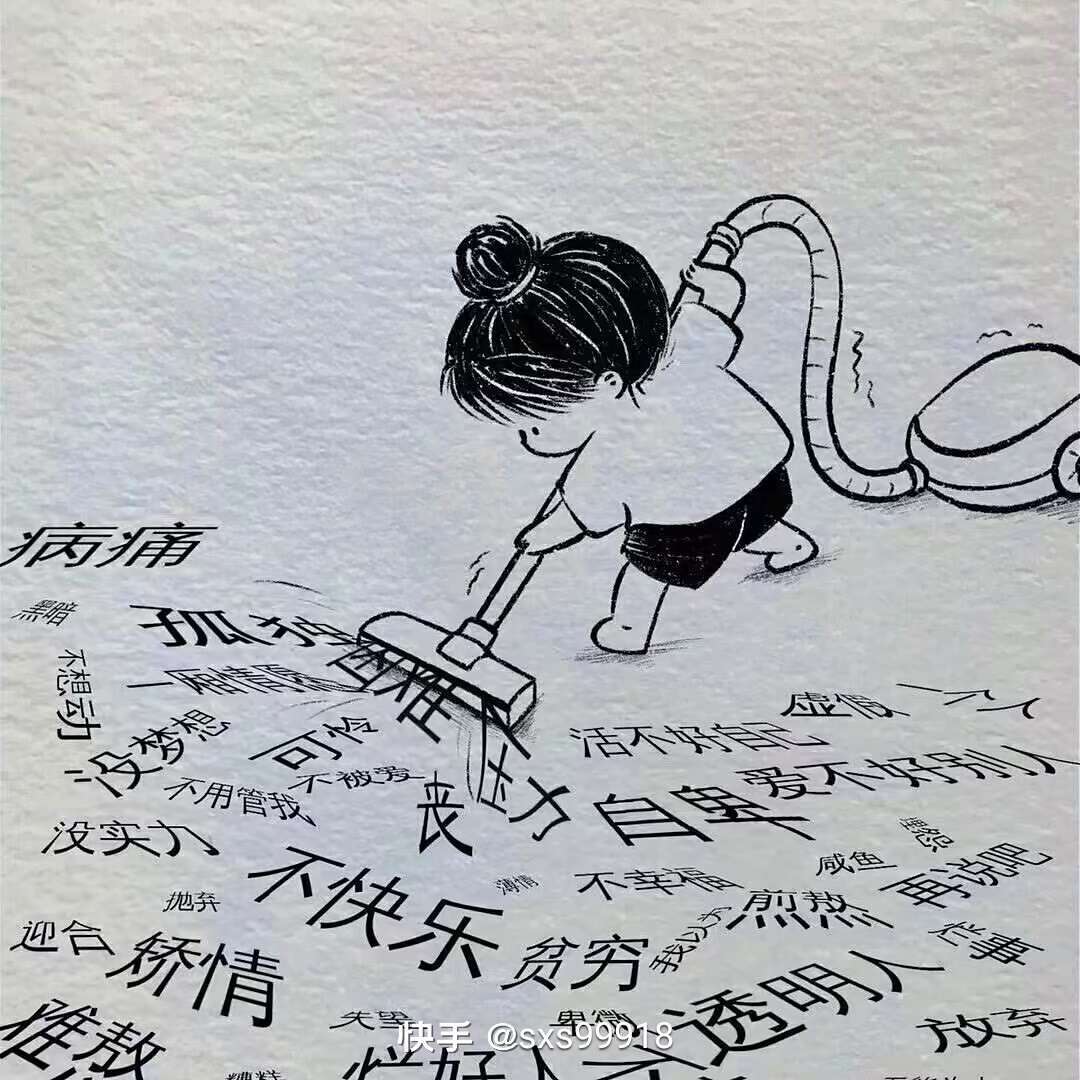 病痛
黑暗
孤独
困难
不想动
一厢情愿
没梦想
可怜
活不好自己
虚假
一个人
不被爱
不用管我
丧
压力
自卑
爱不好别人
没实力
不快乐
薄情
不幸福
咸鱼
埋怨
再说吧
抛弃
煎熬
我以为
迎合
矫情
贫穷
往事
难熬
失望
卑微
透明人
放弃
快手 @sxs99918
烂好人
糟糕